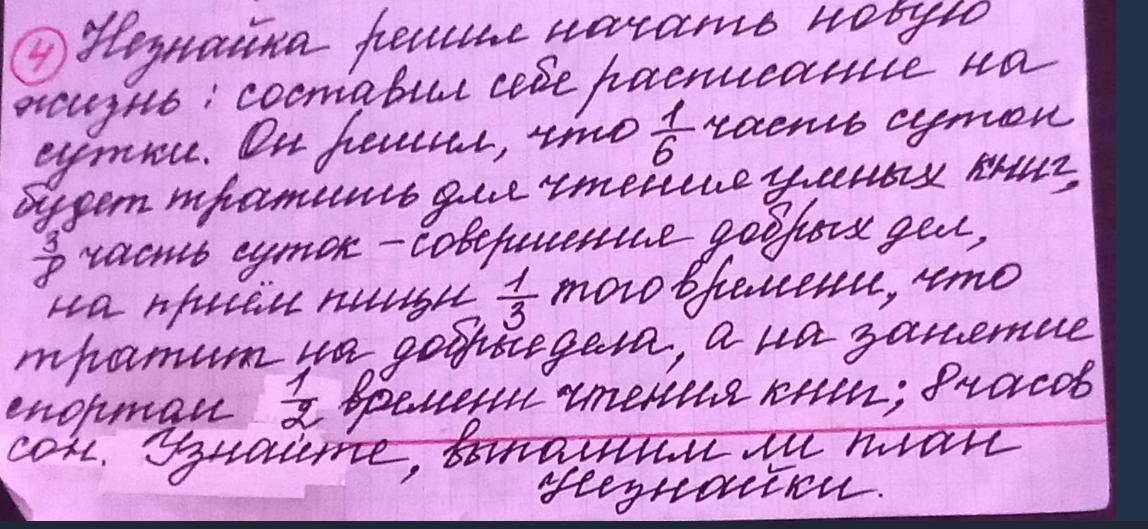 ④ Незнайка решил начать новую
жизнь: составил себе расписание на
сутки. Он решил, что 1/6 часть суток
будет тратить для чтения умных книг,
3/8 часть суток – совершения добрых дел,
на приём пищи 1/3 того времени, что
тратит на добрые дела, а на занятие
спортом 1/2 времени чтения книг; 8 часов
сон. Узнайте, выполним ли план
Незнайки.